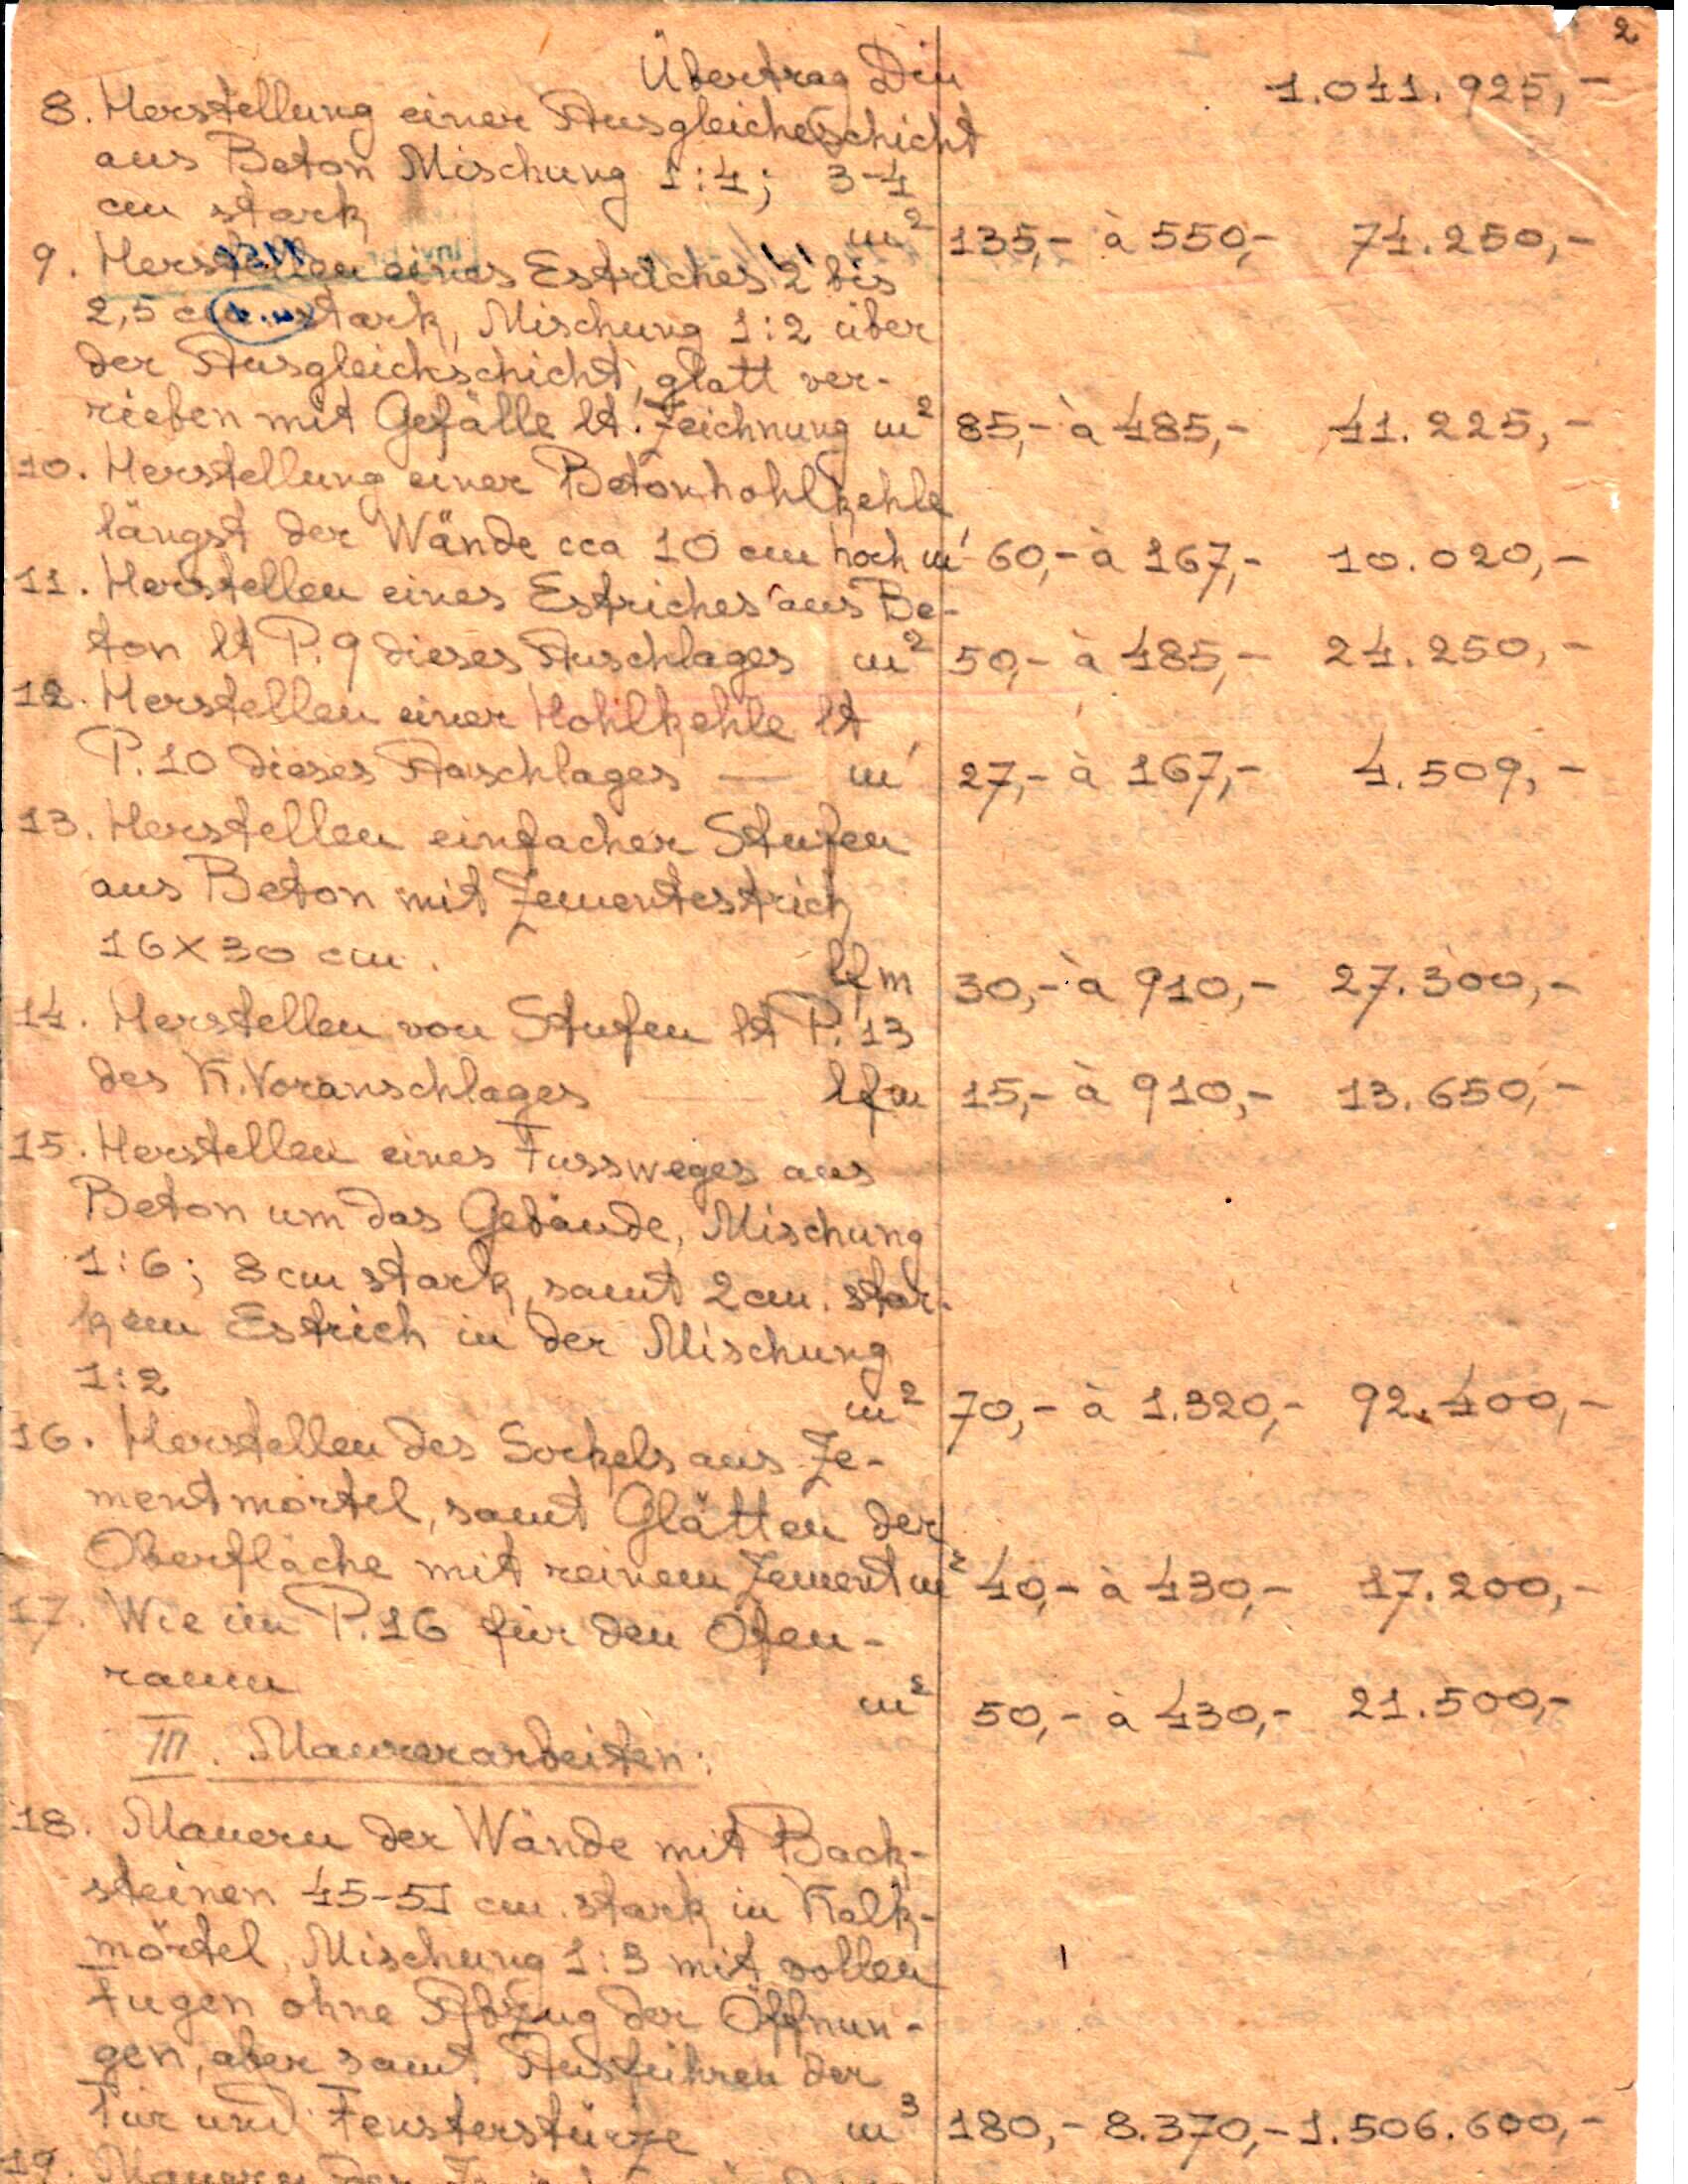 2
Übertrag Din 1.041.925,-
8. Herstellung einer Ausgleichsschicht
aus Beton Mischung 1:4; 3-4
cm stark m² 135,- à 550,- 74.250,-
9. Herstellen eines Estriches 2 bis
2,5 cm stark, Mischung 1:2 über
der Ausgleichschicht, glatt ver-
rieben mit Gefälle lt. Zeichnung m² 85,- à 485,- 41.225,-
10. Herstellung einer Betonhohlkehle
längst der Wände cca 10 cm hoch m' 60,- à 167,- 10.020,-
11. Herstellen eines Estriches aus Be-
ton lt P.9 dieses Auschlages m² 50,- à 485,- 24.250,-
12. Herstellen einer Hohlkehle lt
P.10 dieses Auschlages — m' 27,- à 167,- 4.509,-
13. Herstellen einfacher Stufen
aus Beton mit Zementestrich
16X30 cm. lfm 30,- à 910,- 27.300,-
14. Herstellen von Stufen lt P. 13
des K.Voranschlages lfm 15,- à 910,- 13.650,-
15. Herstellen eines Fussweges aus
Beton um das Gebäude, Mischung
1:6; 8 cm stark, samt 2 cm. star-
kem Estrich in der Mischung
1:2 m² 70,- à 1.320,- 92.400,-
16. Herstellen des Sockels aus Ze-
mentmörtel, samt Glätten der
Oberfläche mit reinem Zement m² 40,- à 430,- 17.200,-
17. Wie im P.16 für den Ofen-
raum m² 50,- à 430,- 21.500,-
III. Maurerarbeiten:
18. Mauern der Wände mit Back-
steinen 45-51 cm. stark in Kalk-
mörtel, Mischung 1:3 mit vollen
Fugen ohne Abzug der Öffnun-
gen, aber samt Ausführen der
Tür und Fensterstürze m³ 180,- 8.370,- 1.506.600,-
19. Mauern der